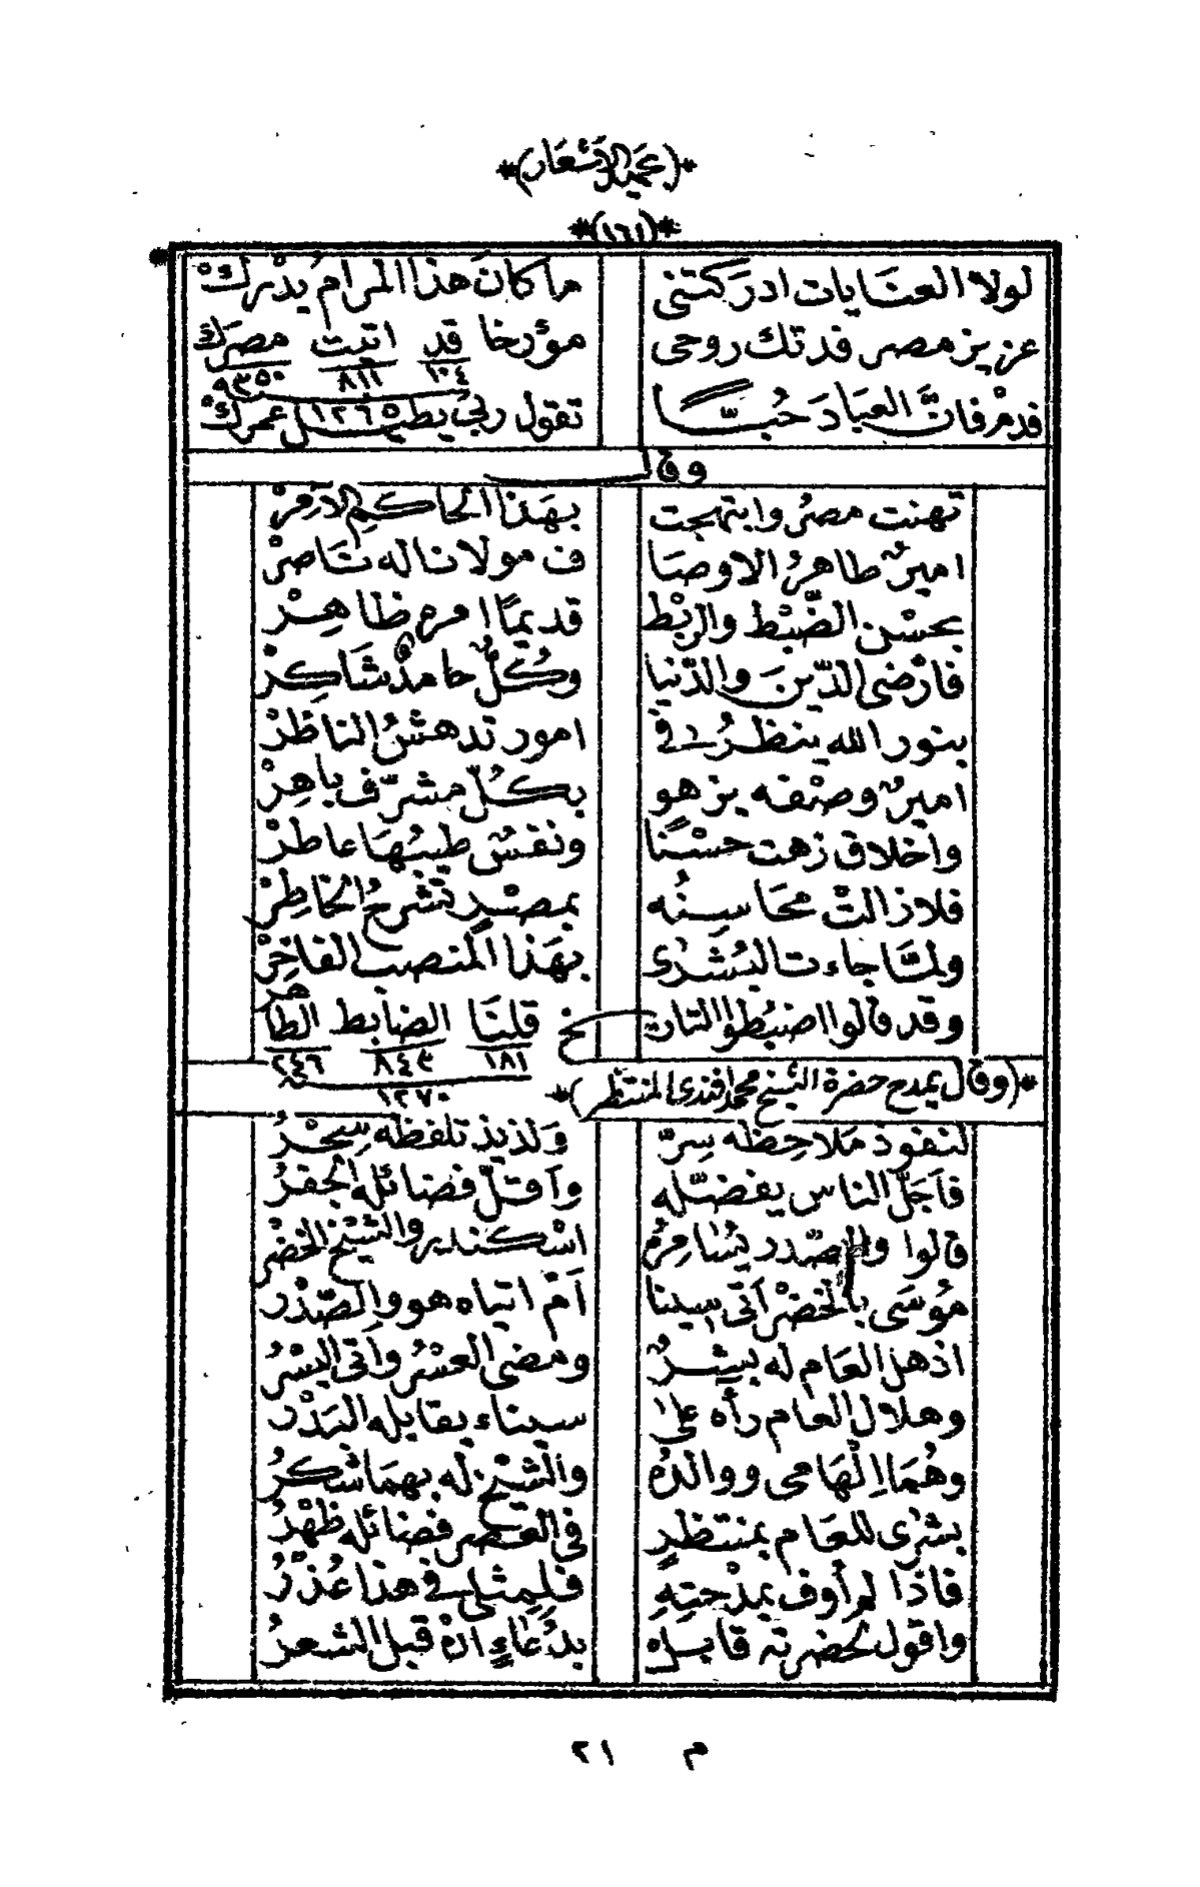 *(عجميل الاشعار)*
*(١٦١)*
لولا العنايات ادركتنى ما كان هذا المرام يُدْركْ
عزيز مصر فدتك روحى مؤرخا قد اتيت مصرك
١٠٤ ٨١١ ٣٥٠
فدمْ فانَّ العبادَ حُبًّا تقول ربى يطيل عمركْ
١٢٦٥
وقال
تهنت مصرُ وابتهجت بهَذا الحاكمِ الآمرْ
اميرٌ طاهرُ الاوصَا ف مولانا له ناصرْ
بحسْن الضَّبْط والربْط قديمًا امره ظاهِرْ
فارْضى الدّينَ والدّنيا وكُلٌّ حامدٌ شَاكِرْ
بنور الله ينظرُ فى امور تدهشُ الناظرْ
اميرٌ وصْفه يزهو بكُلّ مشرّف باهِرْ
واخلاق زهت حسْنًا ونفسٌ طيبُهَا عاطرْ
فلا زالتْ محَاسِنُه بمصْرٍ تَشْرحُ الخاطِرْ
ولمَّا جاءت البُشْرَى بهَذا المنصب الفاخِرْ
وقد قالوا اضبُطوا التاريخ قلنَا الضابط الطاهر
١٨١ ٨٤٣ ٢٤٦
١٢٧٠
*(وقال يمدح حضرة الشيخ محمد افندى المنتظر)*
لنفوذ مَلاحِظه سِرّ وَلذيذ تلفظه سِحْرُ
فاَجَلّ الناس يفضّله وأقلّ فضائله الجفرُ
قالوا والصّدر يُسَامِرُهُ اسْكندر والشيْخ الخضْرُ
مُوسَى بالخضْر أتى سينا أمْ اتياه هو والصّدْر
اذهل العام له بيشرٌ ومضى العسْرُ وأتى اليسْرُ
وهلال العام رآه على سيناء يقابله البَدْر
وهُمَا اِلْهامى ووالدُه والشيْخ له بهمَا شكرُ
بشرَى للعام بمنتظرٍ فى العصر فضائله ظهْرُ
فاذا لم أوف بمدْحتِهِ فلِمِثلى فى هذا عُذْرُ
واقول لحضرته قابله بدُعَاءٍ انْ قبل الشعرُ
م ٢١